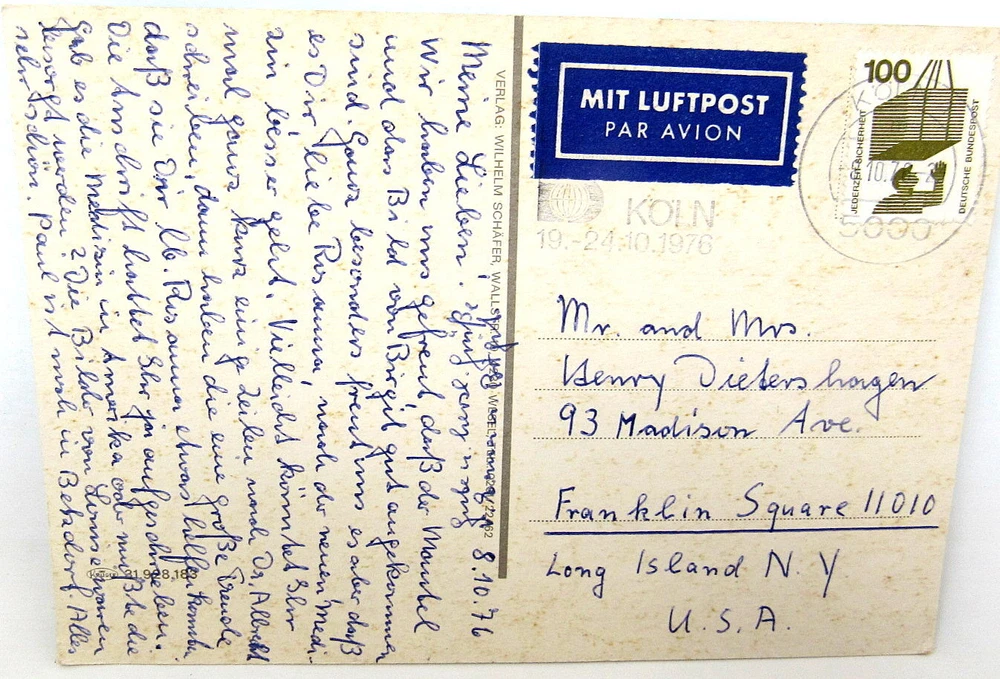 8.10.76
Meine Lieben.
Wir haben uns gefreut daß der Mantel
und das Bild von Birgit gut angekommen
sind. Ganz besonders freut uns es aber daß
es Dir, liebe Rosanna, nach der neuen Medi-
zin besser geht. Vielleicht könntet Ihr
mal ganz kurz einige Zeilen nach Dr. Albrecht
schreiben, dann haben die eine große Freude
daß sie Dir lb. Rosanna etwas helfen konnten
Die Anschrift hattet Ihr ja aufgeschrieben.
Gab es die Medizin in Amerika oder mußte die
besorgt werden? Die Bilder von waren
sehr schön. Paul ist noch in Betzdorf. Alles
VERLAG: WILHELM SCHÄFER, WALLSTR.
Krüger 31.928.183
MIT LUFTPOST
PAR AVION
100
JEDERZEIT SICHERHEIT
DEUTSCHE BUNDESPOST
KÖLN
19.-24.10.1976
5000
Mr. and Mrs.
Henry Dietershagen
93 Madison Ave.
Franklin Square 11010
Long Island N. Y
U. S. A.